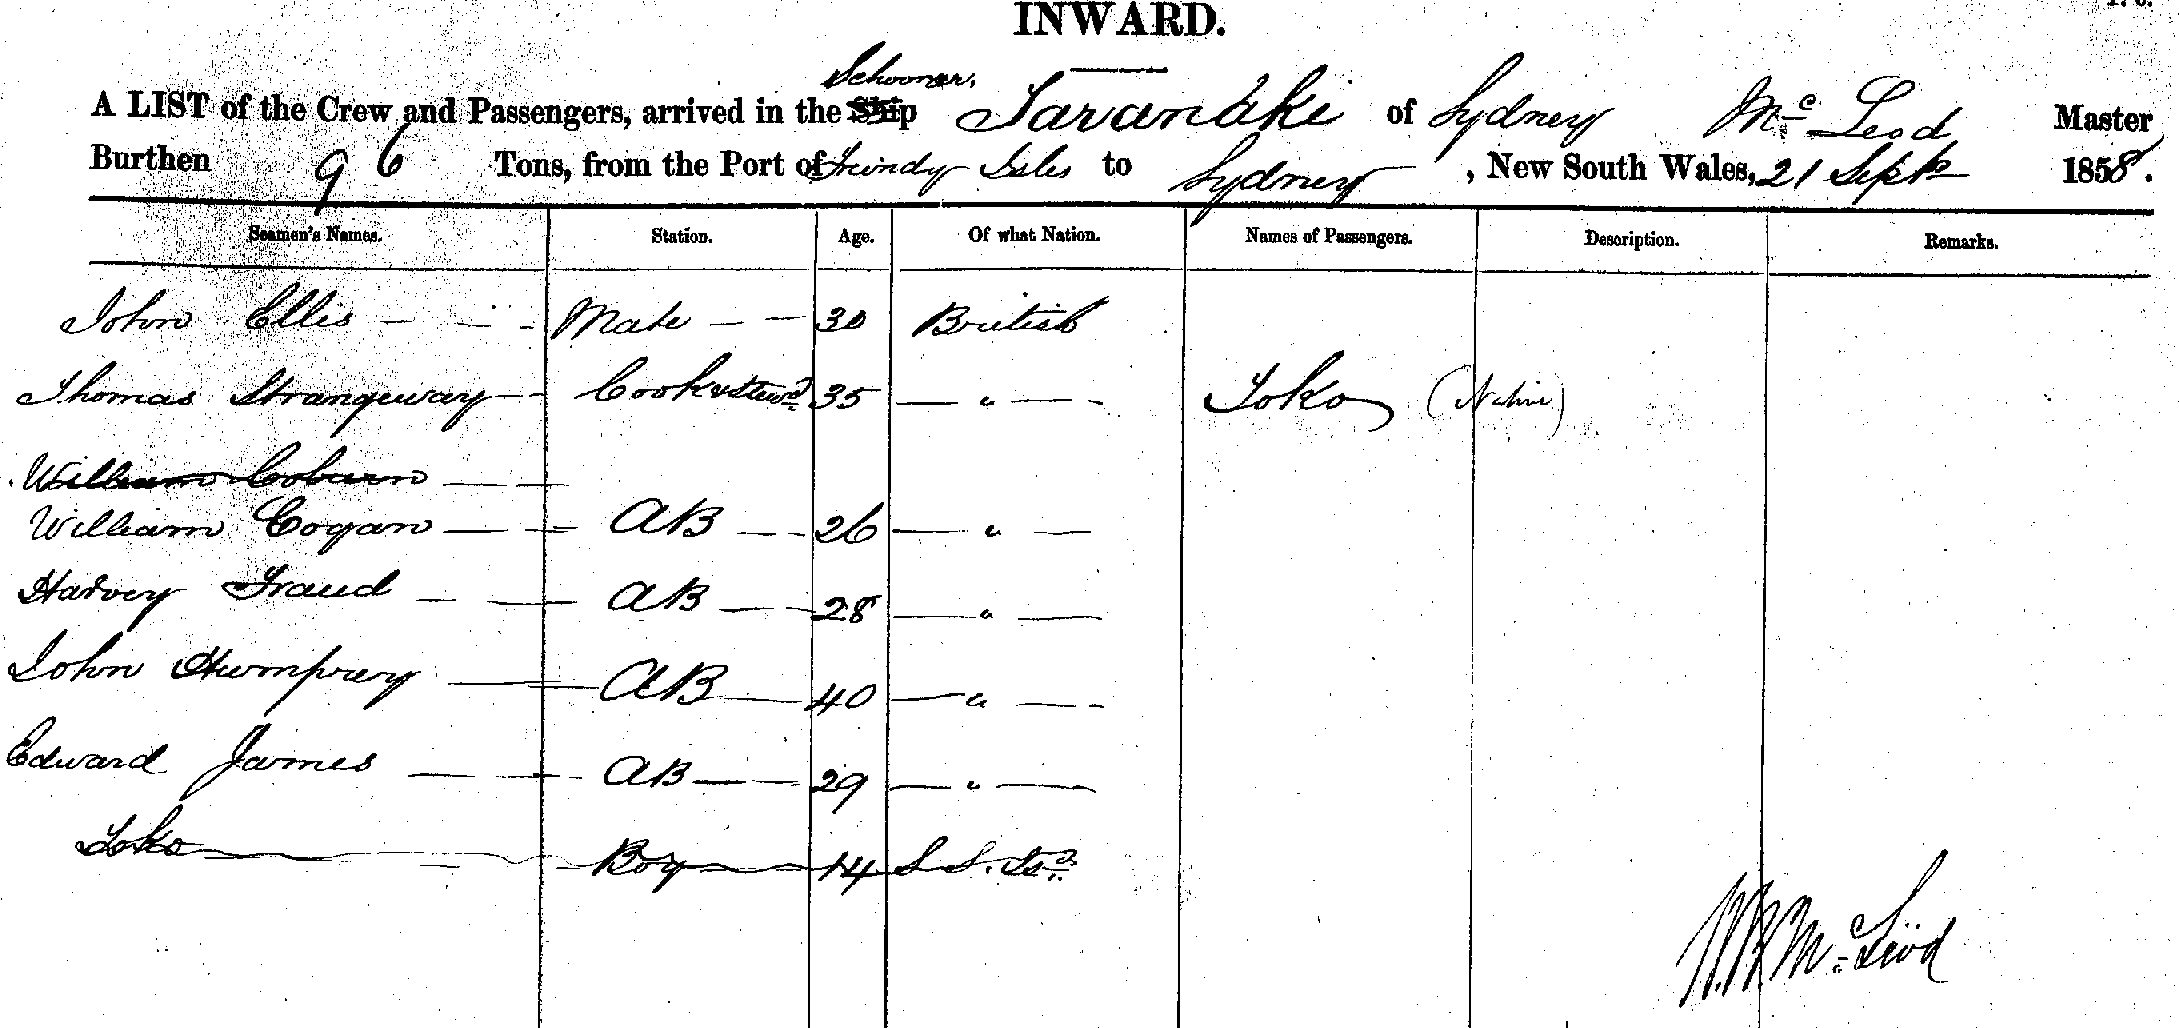 INWARD.
Schooner.
A LIST of the Crew and Passengers, arrived in the Ship Taranaki of Sydney Mc Leod Master
Burthen 96 Tons, from the Port of Isles to Sydney, New South Wales, 21 Sept 1858.
Seamen's Names. Station. Age. Of what Nation. Names of Passengers. Description. Remarks.
John Ellis Mate 30 British
Thomas Strangeway Cook & Stewd 35 " Toko (Native)
William Coburn
William Cogan AB 26 "
Harvey Fraud AB 28 "
John Humprey AB 40 "
Edward James AB 29 "
Toko Boy 14 S. S. Isd.
Mc Leod